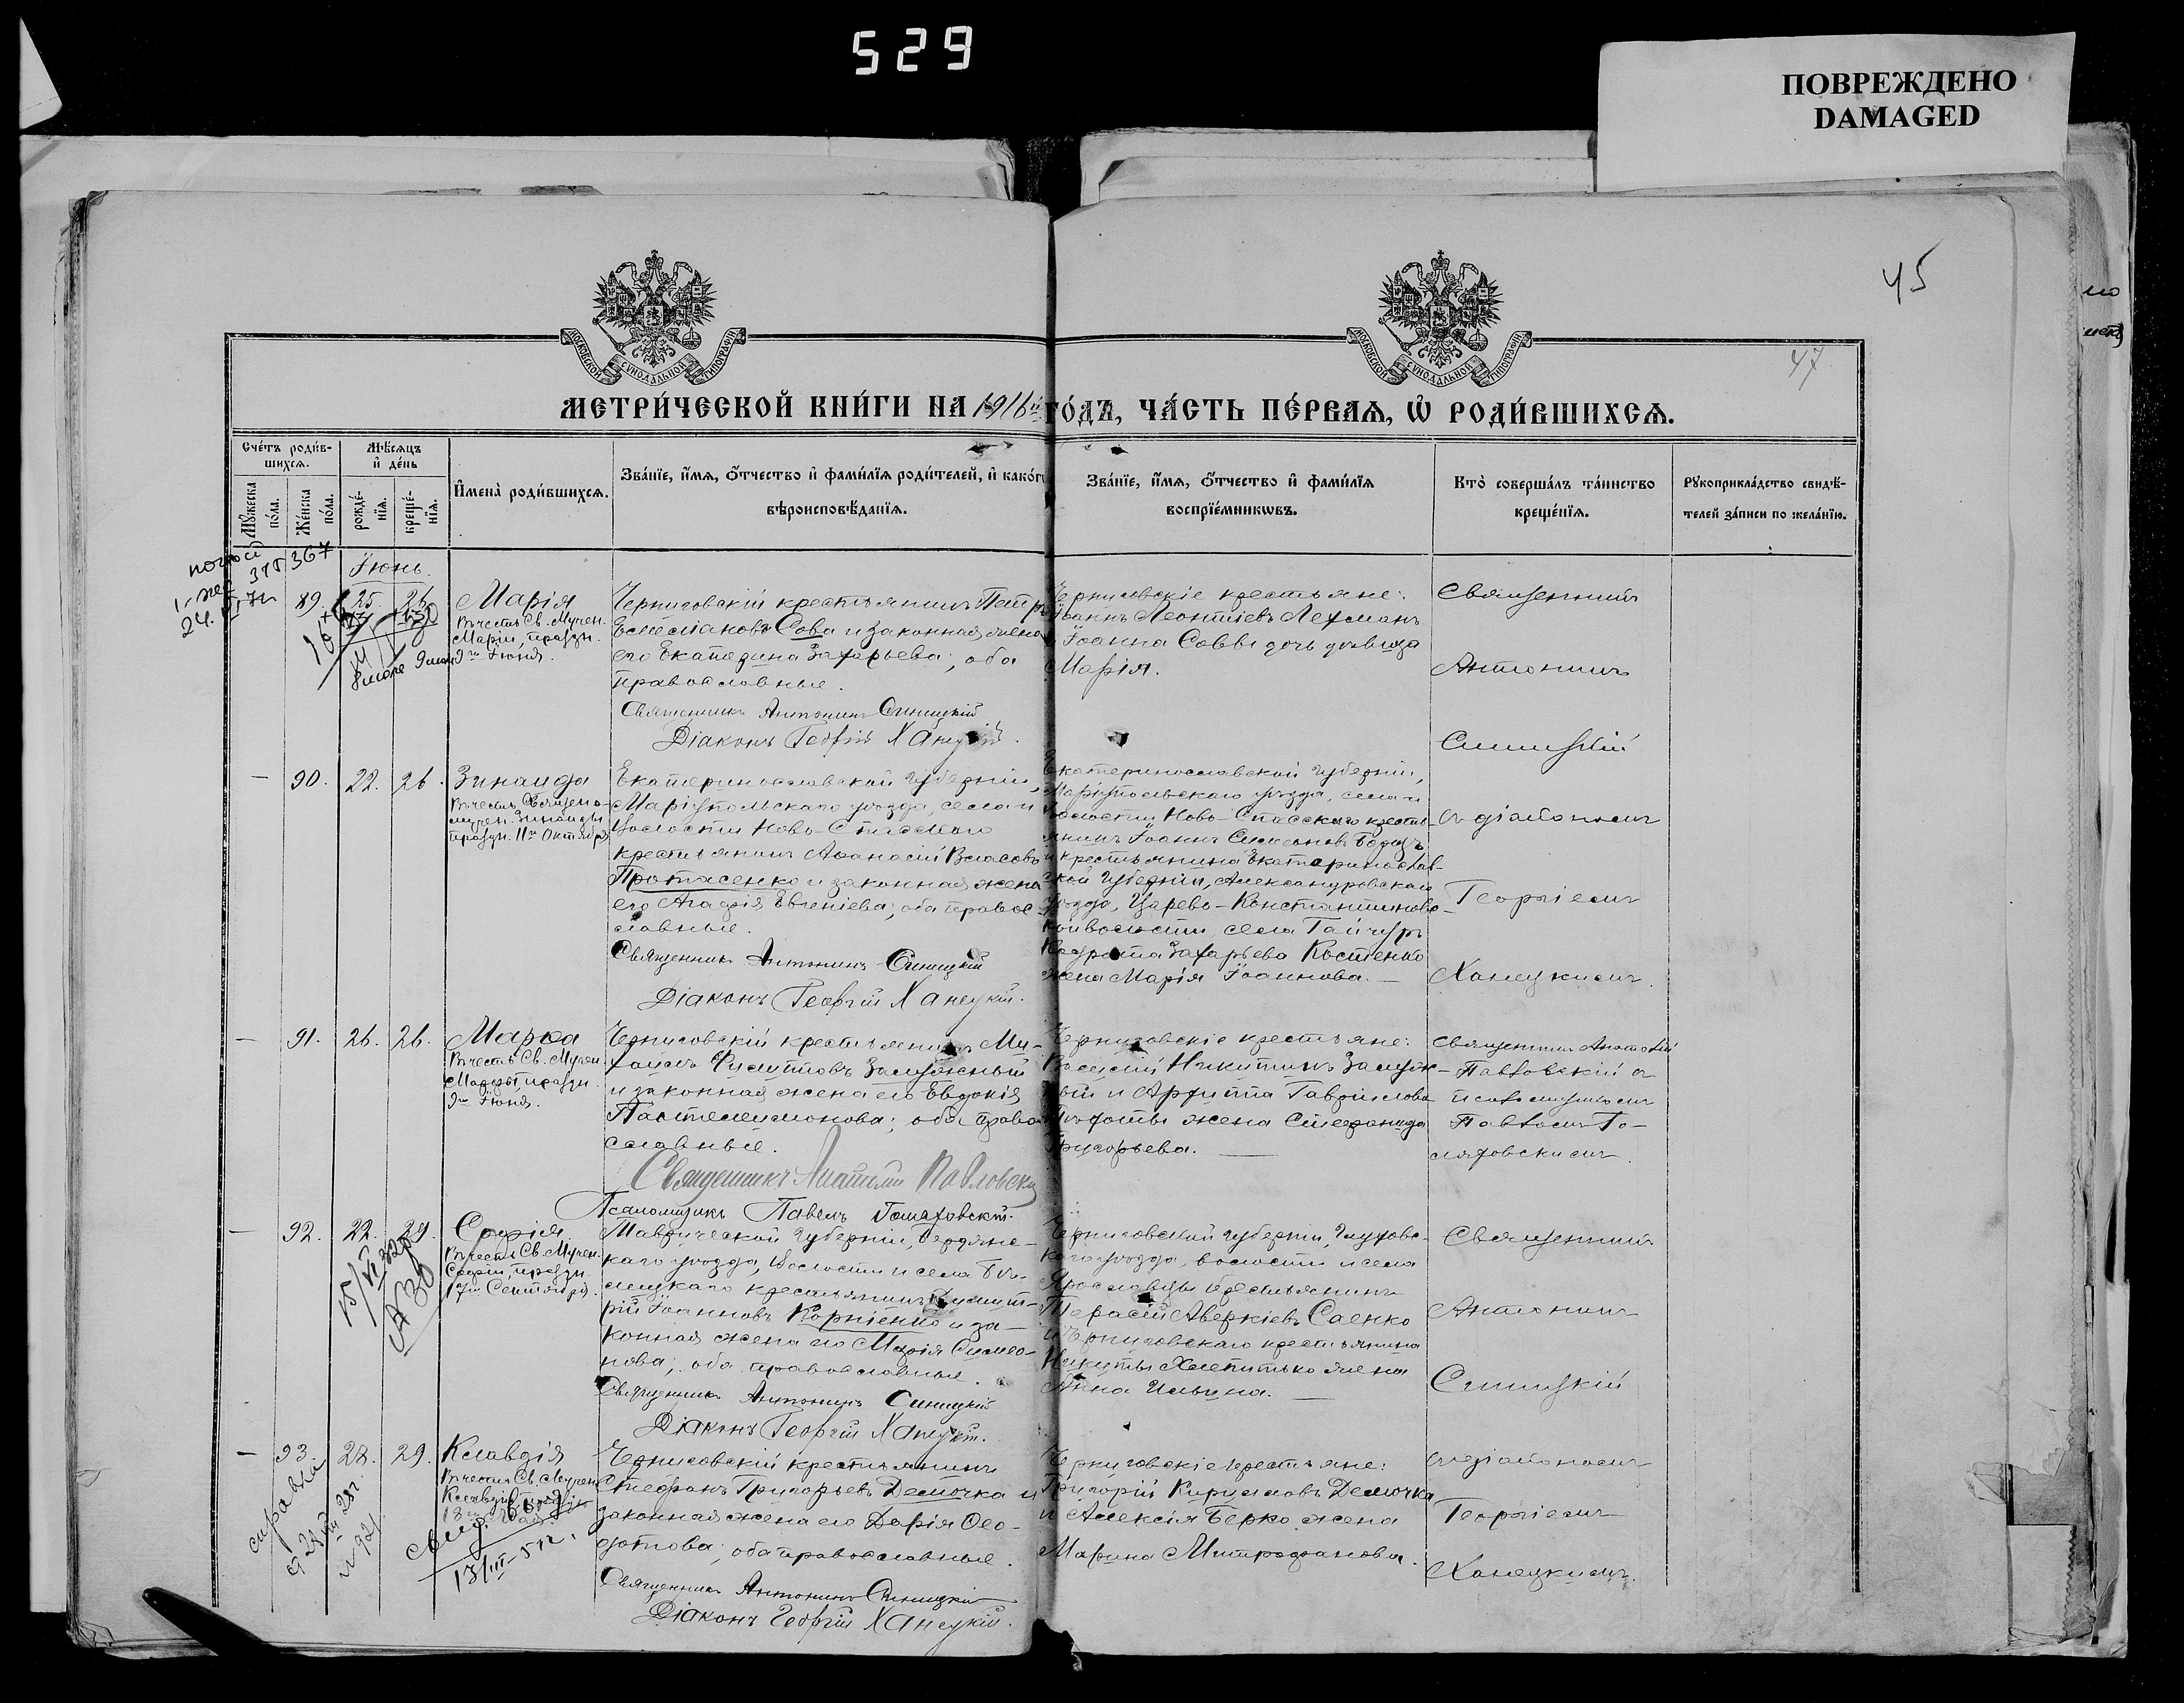 529
ПОВРЕЖДЕНО
DAMAGED
45
47
МОСКОВСКОЙ СѴНОДАЛЬНОЙ ТИПОГРАФІИ
МОСКОВСКОЙ СѴНОДАЛЬНОЙ ТИПОГРАФІИ
МЕТРИ́ЧЕСКОЙ КНИ́ГИ НА 1916й ГО́ДЪ, ЧА́СТЬ ПЕ́РВАЯ, Ѡ҆ РОДИ́ВШИХСЯ.
Сче́тъ роди́в-
шихся.
Мѣ́сяцъ
и҆ де́нь
Мꙋ́жеска
по́ла.
Же́нска
по́ла.
рожде́-
нїя.
креще́-
нїя.
И҆мена̀ роди́вшихся.
Зва́нїе, и҆́мя, ѻ҆́тчество и҆ фами́лїя роди́телей, и҆ како́гѡ
вѣроисповѣ́данїя.
Зва́нїе, и҆́мя, ѻ҆́тчество и҆ фами́лїя
воспрїе́мниковъ.
Кто̀ соверша́лъ та́инство
креще́нїя.
Рꙋкоприкла́дство свидѣ́-
телей за́писи по жела́нїю.
367
Іюнь.
89. 25. 26.
Марія
Въ честь Св. Мучен.
Маріи, праздн.
9го Іюня.
Черниговскій крестьянинъ Петръ
Емеліановъ Сова и законная жена
его Екатерина Захарьева; оба
православные.
Священникъ Антонинъ Синицкій
Діаконъ Георгій Ханецкій.
Черниговскіе крестьяне:
Іоаннъ Леонтіевъ Лехманъ
Іоанна Саввы дочь дѣвица
Марія.
Священникъ
Антонинъ
Синицкій
— 90. 22. 26.
Зинаида
Въ честь Священо-
мучен. Зинаиды
праздн. 11го Октября
Екатеринославской губерніи,
Маріупольскаго уѣзда, села и
волости Ново-Спасскаго
крестьянинъ Аѳанасій Власовъ
Протасенко и законная жена
его Агафія Евгеніева; оба право-
славные.
Священникъ Антонинъ Синицкій
Діаконъ Георгій Ханецкій.
Екатеринославской губерніи,
Маріупольскаго уѣзда, села и
волости Ново-Спасскаго кресть-
янинъ Іоаннъ Симеоновъ
и крестьянина Екатеринослав-
ской губерніи, Александровскаго
уѣзда, Царево-Константиновс-
кой волости, села Гайчуръ
Кодрата Захарьева Костенко
жена Марія Іоаннова. —
съ діакономъ
Георгіемъ
Ханецкимъ.
— 91. 26. 26.
Марѳа
Въ честь Св. Мучен.
Марѳы, праздн.
9го Іюня.
Черниговскій крестьянинъ Ми-
хаилъ Филипповъ Залужный
и законная жена его Евдокія
Пантелеимонова; оба право-
славные.
Священникъ Анатолій Павловскій
Псаломщикъ Павелъ Гомаховскій.
Черниговскіе крестьяне:
Василій Никитинъ Залуж-
ный и Архиппа Гавриилова
жена Стефанида
Григорьева. —
Священникъ Анатолій
Павловскій съ
псаломщикомъ
Павломъ Го-
маховскимъ.
— 92. 22. 29.
Софія
Въ честь Св. Мучен.
Софіи, праздн.
17го Сентября.
Таврической губерніи, Бердянс-
каго уѣзда, волости и села Бѣ-
лецкаго крестьянинъ Димит-
рій Іоанновъ Корніенко и за-
конная жена его Марія Симео-
нова; оба православные.
Священникъ Антонинъ Синицкій
Діаконъ Георгій Ханецкій.
Черниговской губерніи, Глухов-
каго уѣзда, волости и села
Ярославца крестьянинъ
Тарасій Аверкіевъ Саенко
и Черниговскаго крестьянина
Никиты Хмепитько жена
Анна Ильина. —
Священникъ
Антонинъ
Синицкій
— 93. 28. 29.
Клавдія
Въ честь Св. Мучен.
Клавдіи, праздн.
18го Мая.
Черниговскій крестьянинъ
Стефанъ Григорьевъ Демочка и
законная жена его Дарія Ѳео-
дотова; оба православные.
Священникъ Антонинъ Синицкій
Діаконъ Георгій Ханецкій.
Черниговскіе крестьяне:
Григорій Кирилловъ Демочка
и Алексія Берко жена
Марина Митрофанова.
съ діакономъ
Георгіемъ
Ханецкимъ.
справка